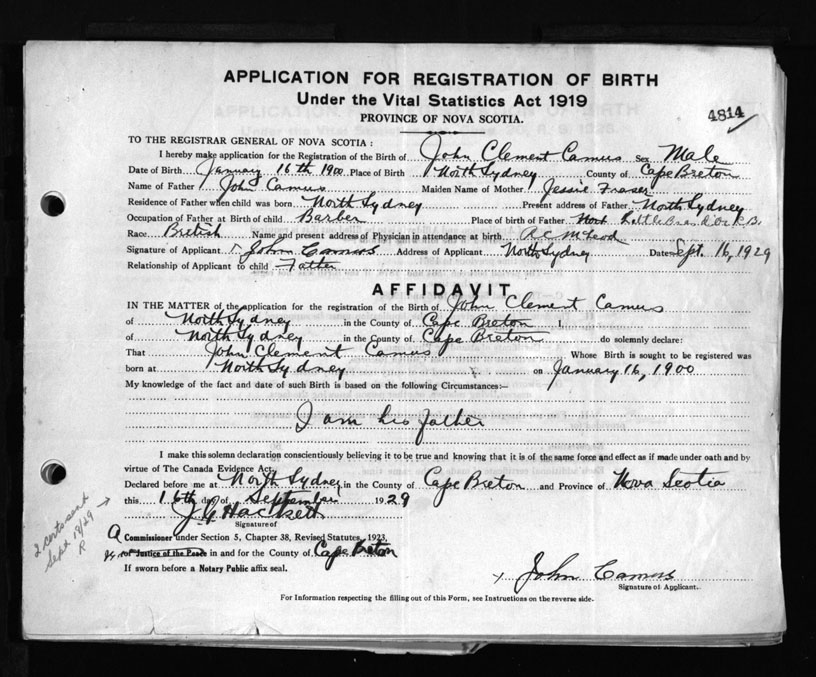 APPLICATION FOR REGISTRATION OF BIRTH
Under the Vital Statistics Act 1919
PROVINCE OF NOVA SCOTIA.
4814
TO THE REGISTRAR GENERAL OF NOVA SCOTIA :
I hereby make application for the Registration of the Birth of John Clement Camus Sex Male
Date of Birth January 16th 1900 Place of Birth North Sydney County of Cape Breton
Name of Father John Camus Maiden Name of Mother Jessie Fraser
Residence of Father when child was born North Sydney Present address of Father North Sydney
Occupation of Father at Birth of child Barber Place of birth of Father Little Bras d'Or C.B.
Race British Name and present address of Physician in attendance at birth A C McLeod
Signature of Applicant John Camus Address of Applicant North Sydney Date Sept. 16, 1929
Relationship of Applicant to child Father
AFFIDAVIT
IN THE MATTER of the application for the registration of the Birth of John Clement Camus
of North Sydney in the County of Cape Breton I,
of North Sydney in the County of Cape Breton do solemnly declare:
That John Clement Camus Whose Birth is sought to be registered was
born at North Sydney on January 16, 1900
My knowledge of the fact and date of such Birth is based on the following Circumstances:—
I am his father
I make this solemn declaration conscientiously believing it to be true and knowing that it is of the same force and effect as if made under oath and by
virtue of The Canada Evidence Act.
Declared before me at North Sydney in the County of Cape Breton and Province of Nova Scotia
this 16th day of September 1929
J G Hackett
Signature of
A Commissioner under Section 5, Chapter 38, Revised Statutes, 1923,
or Justice of the Peace in and for the County of Cape Breton
If sworn before a Notary Public affix seal.
2 certs send
Sept 19/29
R
x John Camus
Signature of Applicant.
For Information respecting the filling out of this Form, see Instructions on the reverse side.